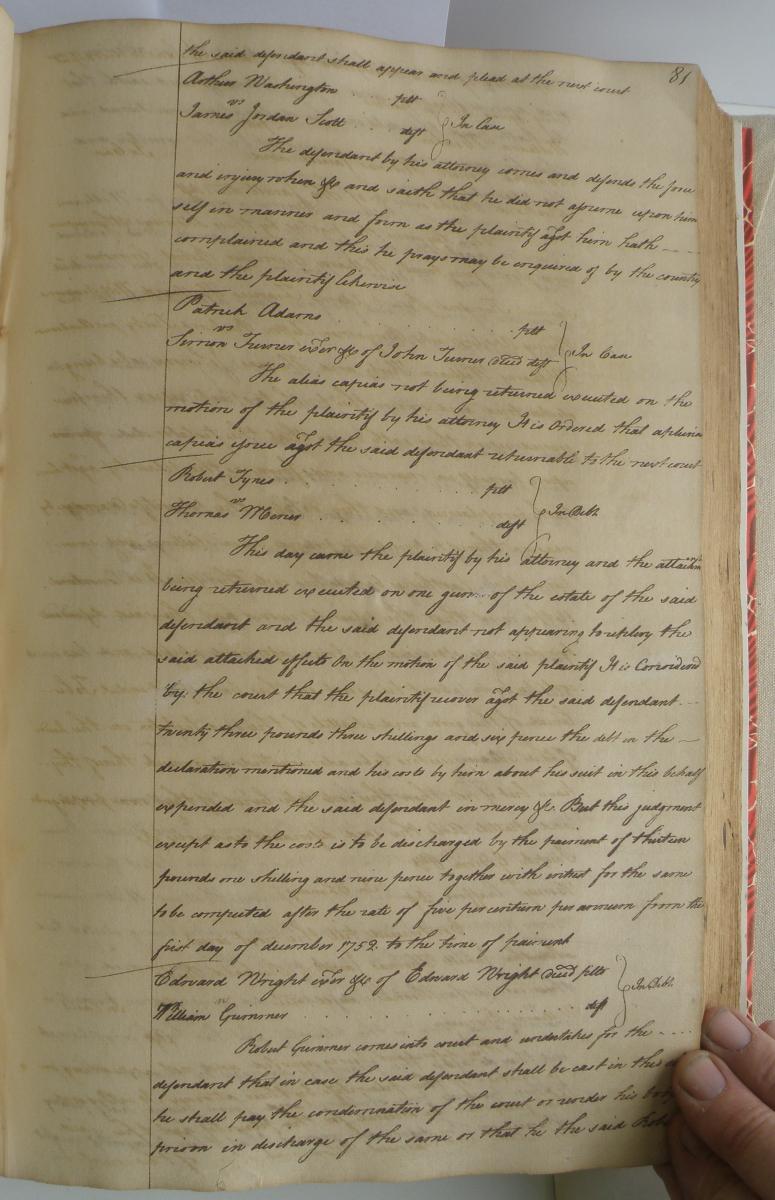 81
the said defendant shall appear and plead at the next court
Arthur Washington . . . pltf
vs
James Jordan Scott . . deft } In Case
The defendant by his attorney comes and defends the force
and injury when &c and saith that he did not assume upon him
self in manner and form as the plaintif agst him hath
complained and this he prays may be enquired of by the country
and the plaintif likewise
Patrick Adams . . . . . . pltf
vs
Simon Turner exer &c of John Turner deced deft } In Case
The alias capias not being returned executed on the
motion of the plaintif by his attorney It is Ordered that a pluries
capias issue agst the said defendant returnable to the next court
Robert Tynes . . . . . . pltf
vs
Thomas . . . . . . deft } In Debt
This day came the plaintif by his attorney and the attachmt
being returned executed on one gun of the estate of the said
defendant and the said defendant not appearing to replevy the
said attached effects On the motion of the said plaintif It is Considered
by the court that the plaintif recover agst the said defendant
twenty three pounds three shillings and six pence the debt in the
declaration mentioned and his costs by him about his suit in this behalf
expended and the said defendant in mercy &c. But this judgment
except as to the costs is to be discharged by the paiment of thirteen
pounds one shilling and nine pence together with intrest for the same
to be computed after the rate of five per centum per annum from the
first day of december 1752 to the time of paiment
Edward Wright exer &c of Edward Wright deced pltf
vs
William Gimmer . . . . . . deft } In Debt
Robert Gimmer comes into court and undertakes for the
defendant that in case the said defendant shall be cast in the
he shall pay the condemnation of the court or render his body
prison in discharge of the same or that he the said Robt